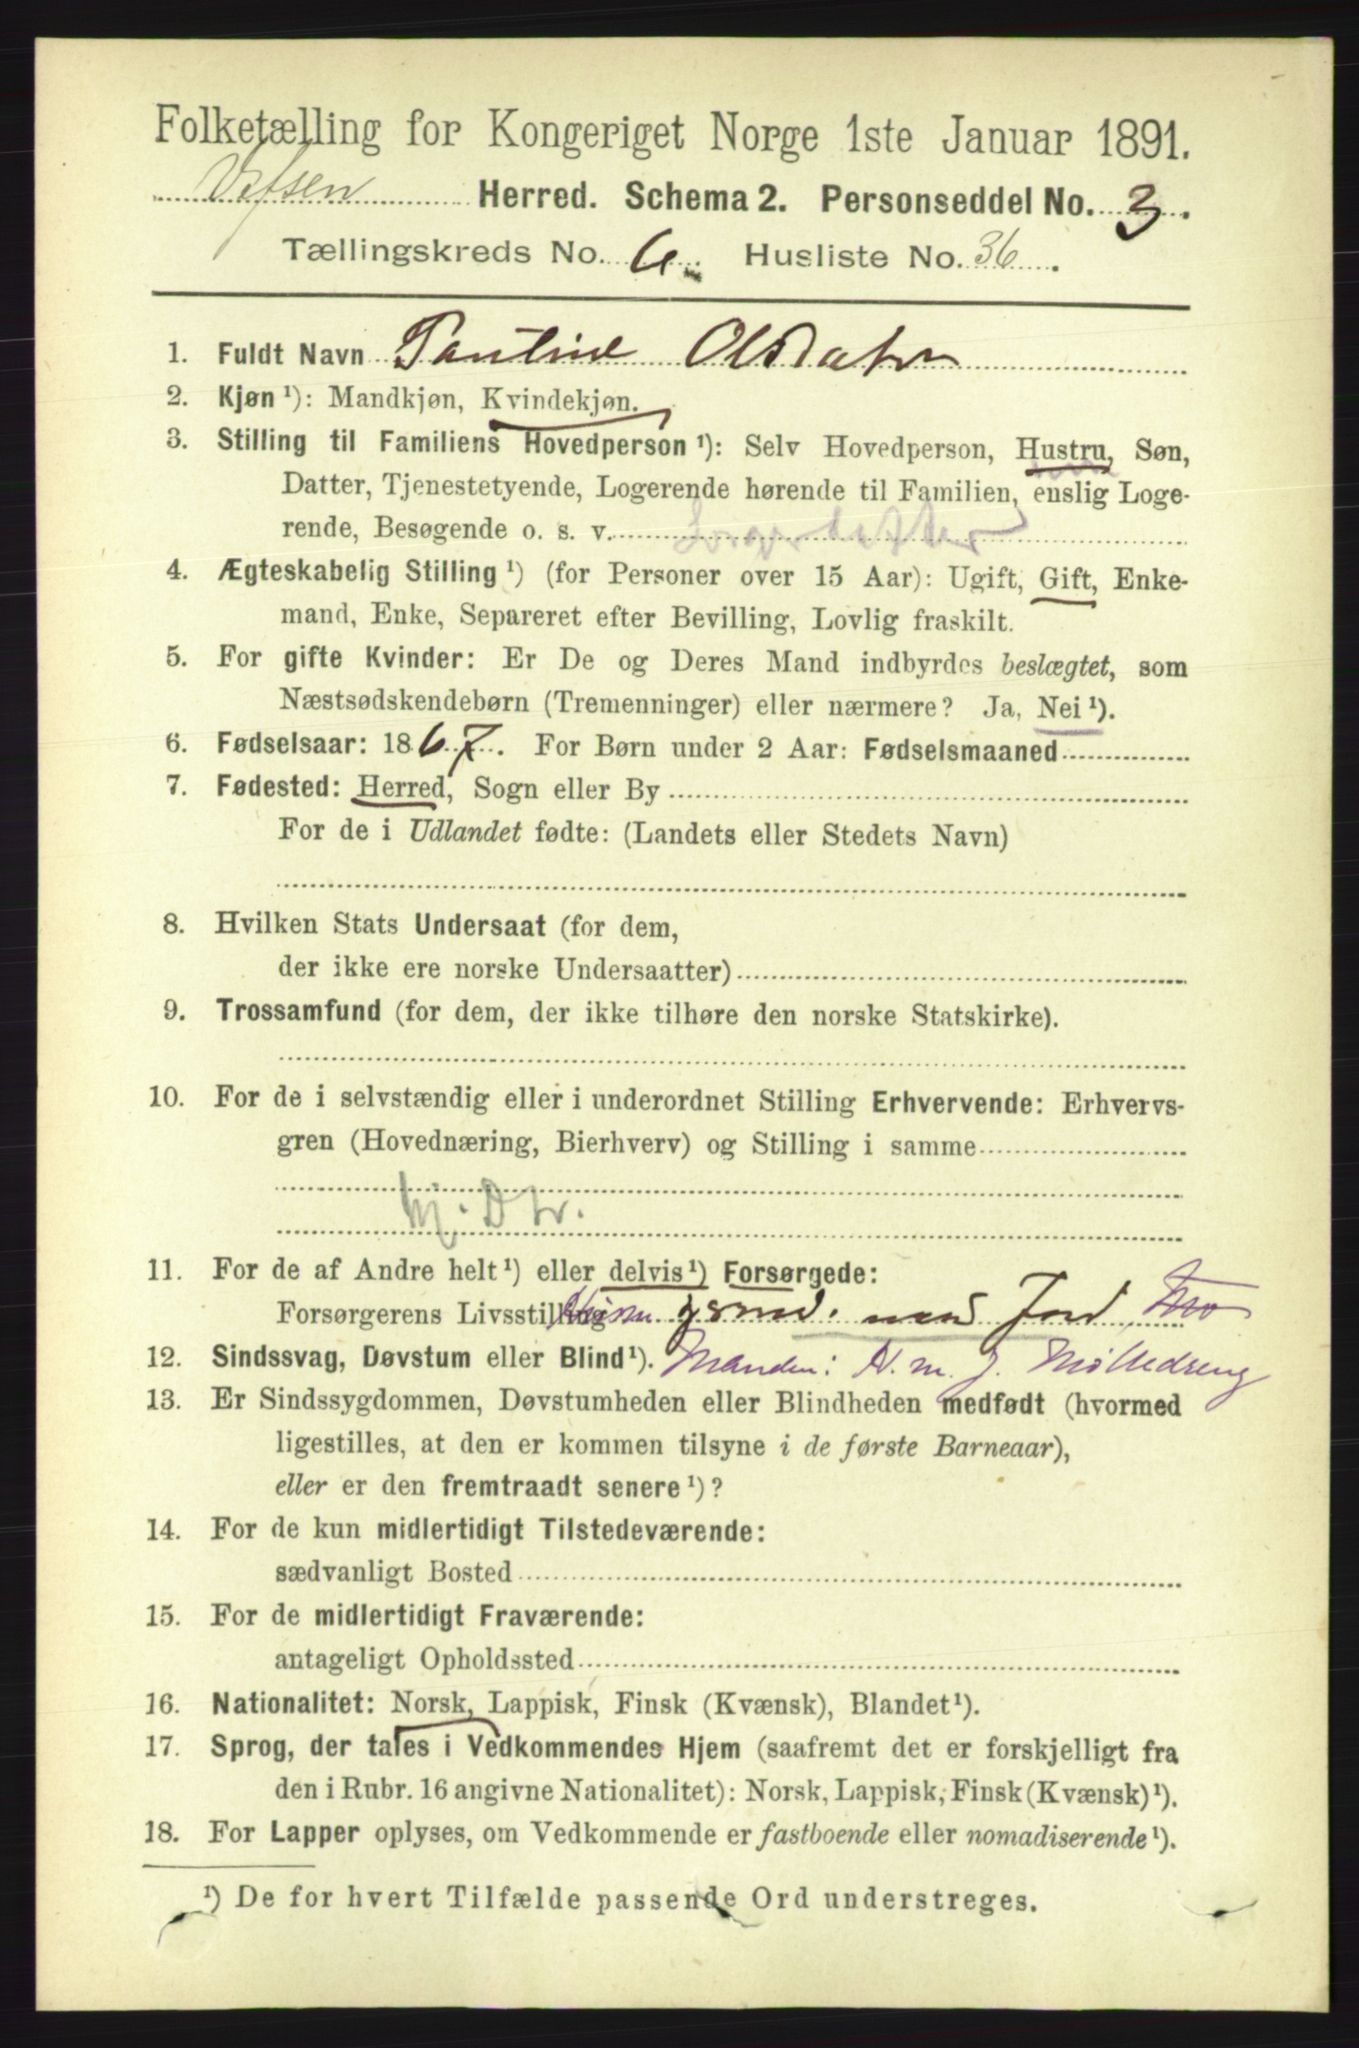 Folketælling for Kongeriget Norge 1ste Januar 1891.
Vefsen Herred. Schema 2. Personseddel No. 3.
Tællingskreds No. 6. Husliste No. 36.
1. Fuldt Navn Pauline Olsdatr
2. Kjøn ¹): Mandkjøn, Kvindekjøn.
3. Stilling til Familiens Hovedperson ¹): Selv Hovedperson, Hustru, Søn,
Datter, Tjenestetyende, Logerende hørende til Familien, enslig Loge-
rende, Besøgende o. s. v.
4. Ægteskabelig Stilling ¹) (for Personer over 15 Aar): Ugift, Gift, Enke-
mand, Enke, Separeret efter Bevilling, Lovlig fraskilt.
5. For gifte Kvinder: Er De og Deres Mand indbyrdes beslægtet, som
Næstsødskendebørn (Tremenninger) eller nærmere? Ja, Nei ¹).
6. Fødselsaar: 1867. For Børn under 2 Aar: Fødselsmaaned
7. Fødested: Herred, Sogn eller By
For de i Udlandet fødte: (Landets eller Stedets Navn)
8. Hvilken Stats Undersaat (for dem,
der ikke ere norske Undersaatter)
9. Trossamfund (for dem, der ikke tilhøre den norske Statskirke).
10. For de i selvstændig eller i underordnet Stilling Erhvervende: Erhvervs-
gren (Hovednæring, Bierhverv) og Stilling i samme
11. For de af Andre helt ¹) eller delvis ¹) Forsørgede:
Forsørgerens Livsstilling med Jord
12. Sindssvag, Døvstum eller Blind ¹). Manden: N. m. J. Mølledreng
13. Er Sindssygdommen, Døvstumheden eller Blindheden medfødt (hvormed
ligestilles, at den er kommen tilsyne i de første Barneaar),
eller er den fremtraadt senere ¹)?
14. For de kun midlertidigt Tilstedeværende:
sædvanligt Bosted
15. For de midlertidigt Fraværende:
antageligt Opholdssted
16. Nationalitet: Norsk, Lappisk, Finsk (Kvænsk), Blandet ¹).
17. Sprog, der tales i Vedkommendes Hjem (saafremt det er forskjelligt fra
den i Rubr. 16 angivne Nationalitet): Norsk, Lappisk, Finsk (Kvænsk) ¹).
18. For Lapper oplyses, om Vedkommende er fastboende eller nomadiserende ¹).
¹) De for hvert Tilfælde passende Ord understreges.